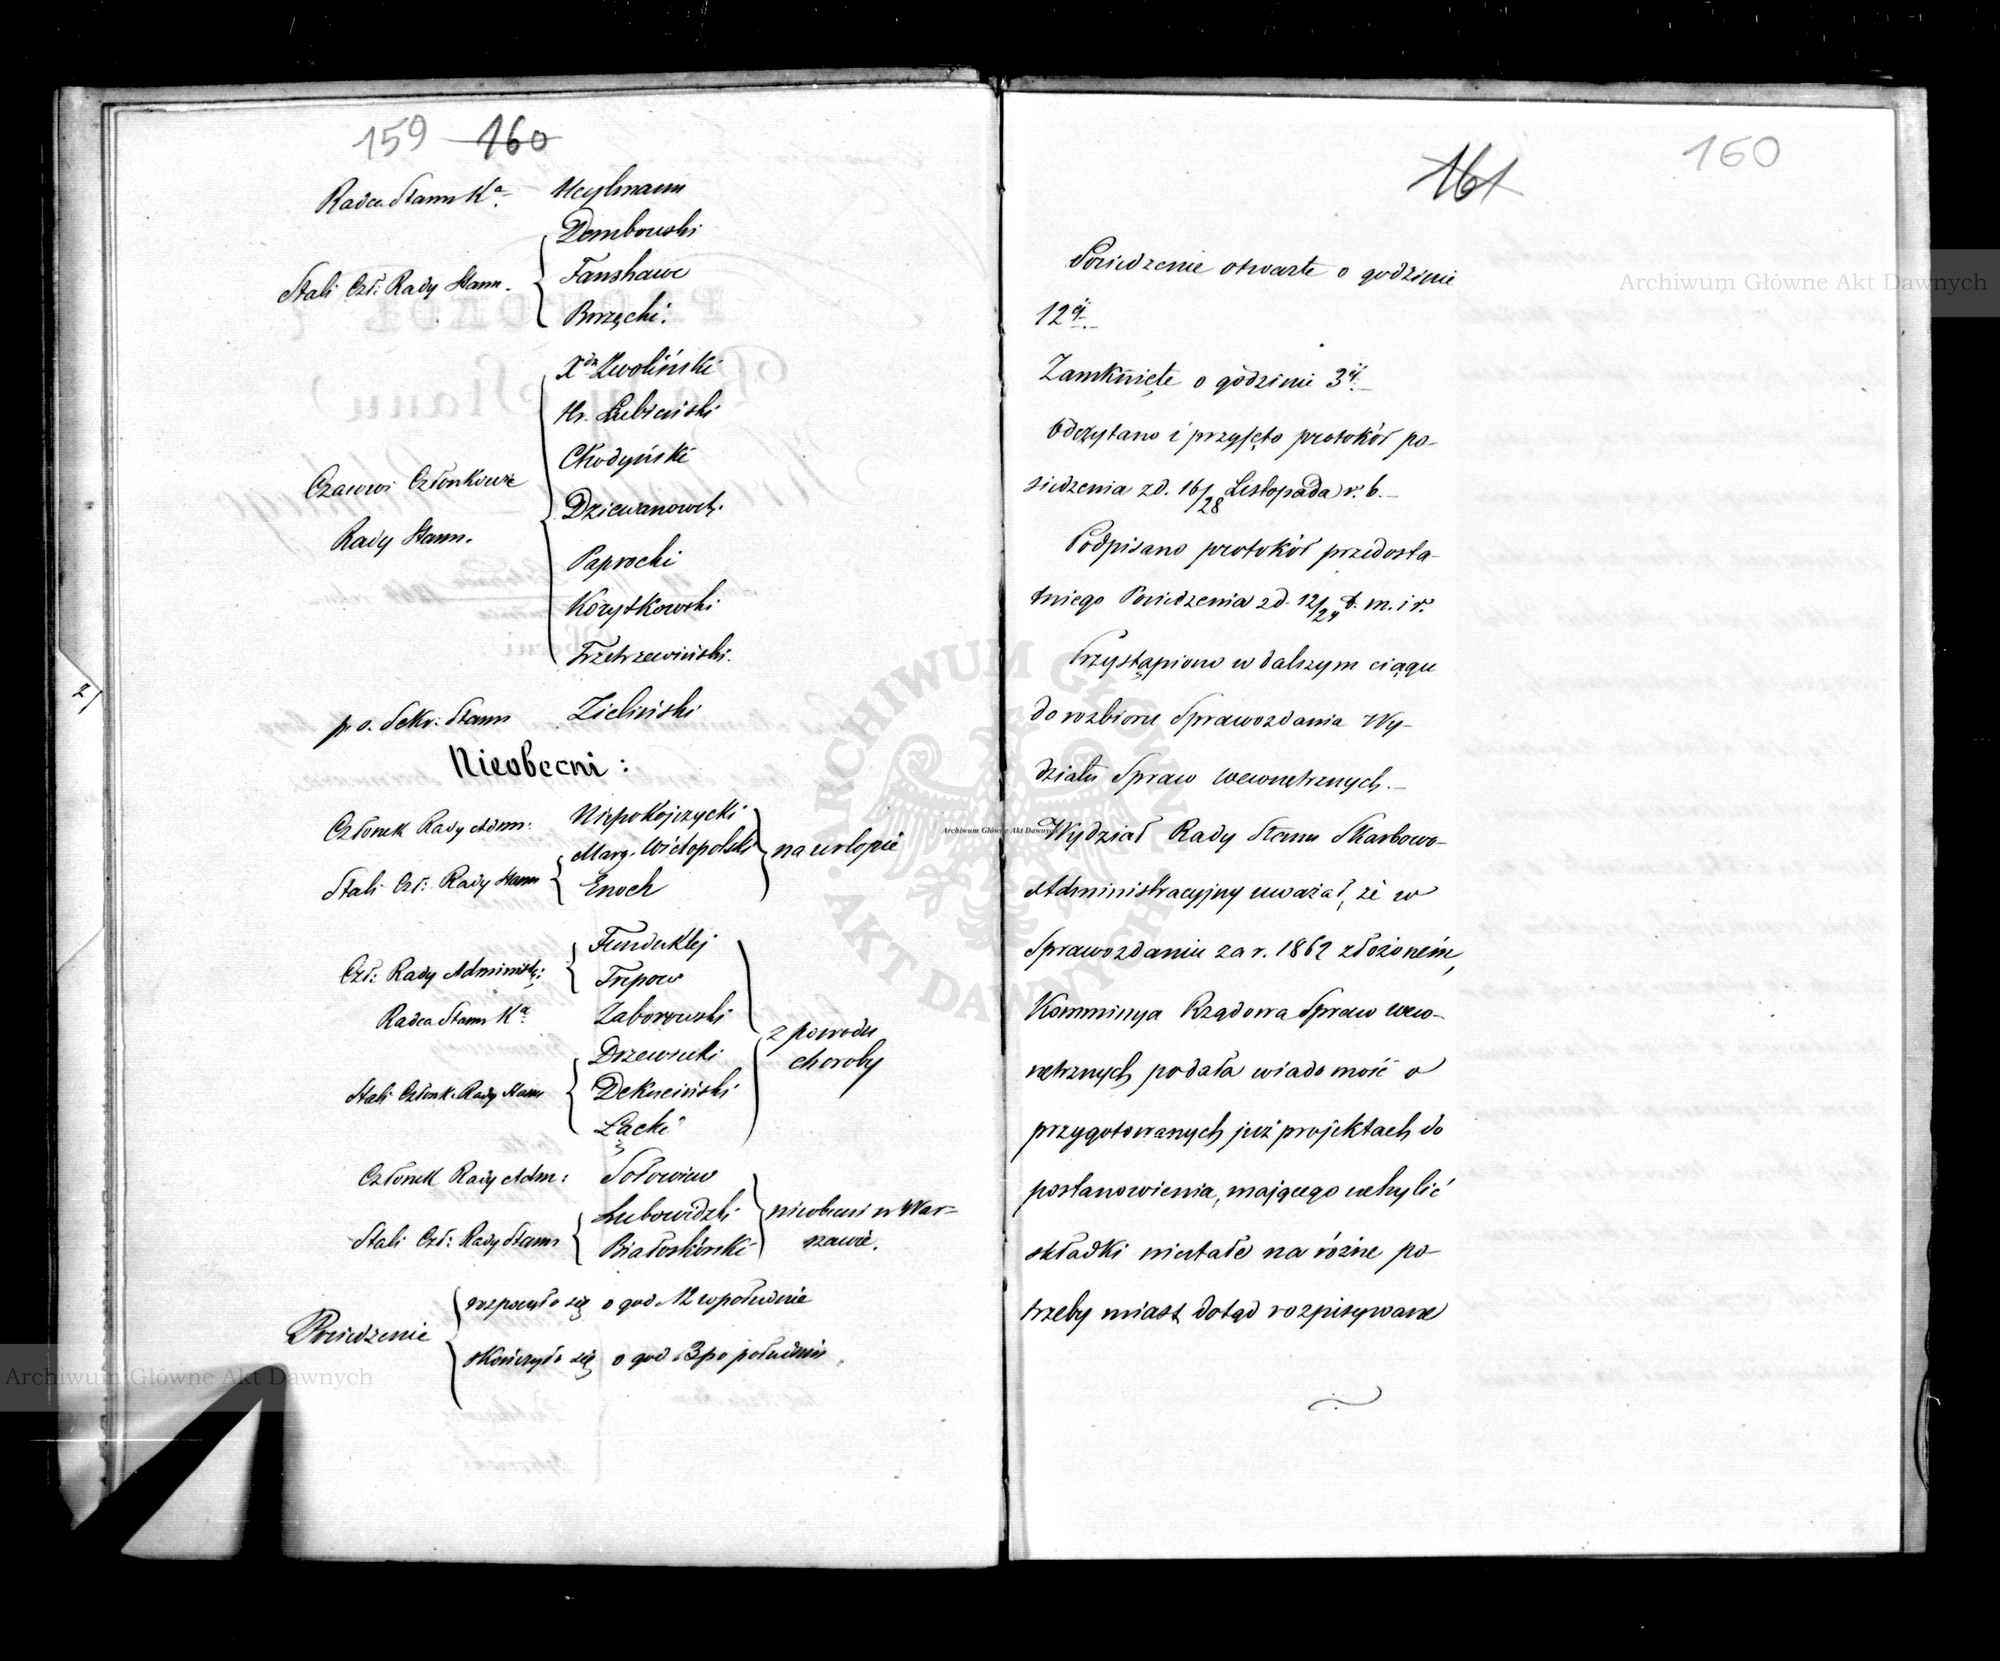 159 160
Radca Stanu Ka. Heylmann
Dembowski
Stali Czł: Rady Stanu. Fanshawe
Brzęcki.
Xdz Zwoliński
Hr. Łubieński
Chodyński
Czasowi Członkowie
Dziewanowski
Rady Stanu.
Paprocki
Korytkowski
Trzetrzewiński.
p. o. Sekr: Stanu Zieliński
Nieobecni:
Członek Rady Adm: Niepokojczycki
Marg. Wielopolski na urlopie
Stali Czł: Rady Stanu Enoch
Funduklej
Czł: Rady Administr:
Trepow
Radca Stanu Ka. Zaborowski
z powodu
Drzewiecki choroby
Stali Członk. Rady Stanu Dekuciński
Łącki
Członek Rady Adm: Sołowiew
Lubowidzki nieobecni w War-
Stali Czł: Rady Stanu Białoskórski szawie.
rozpoczęło się o god. 12 w południe
Posiedzenie
skończyło się o god. 3 po południu.
161 160
Posiedzenie otwarte o godzinie
12éj.
Zamknięte o godzinie 3éj.
Odczytano i przyjęto protokół po-
siedzenia z d. 16/28 Listopada r. b.
Podpisano protokół przedosta-
tniego Posiedzenia z d. 12/24 b. m. i r.
Przystąpiono w dalszym ciągu
do rozbioru Sprawozdania Wy-
działu Spraw wewnetrznych.
Wydział Rady Stanu Skarbowo-
Administracyjny uważał, że w
Sprawozdaniu za r. 1862 złożoném,
Kommissya Rządowa Spraw wew-
netrznych podała wiadomość o
przygotowanych już projektach do
postanowienia, mającego uchylić
składki niestałe na różne po-
trzeby miast dotąd rozpisywane
Archiwum Główne Akt Dawnych
Archiwum Główne Akt Dawnych
Archiwum Główne Akt Dawnych
ARCHIWUM GŁÓWNE AKT DAWNYCH